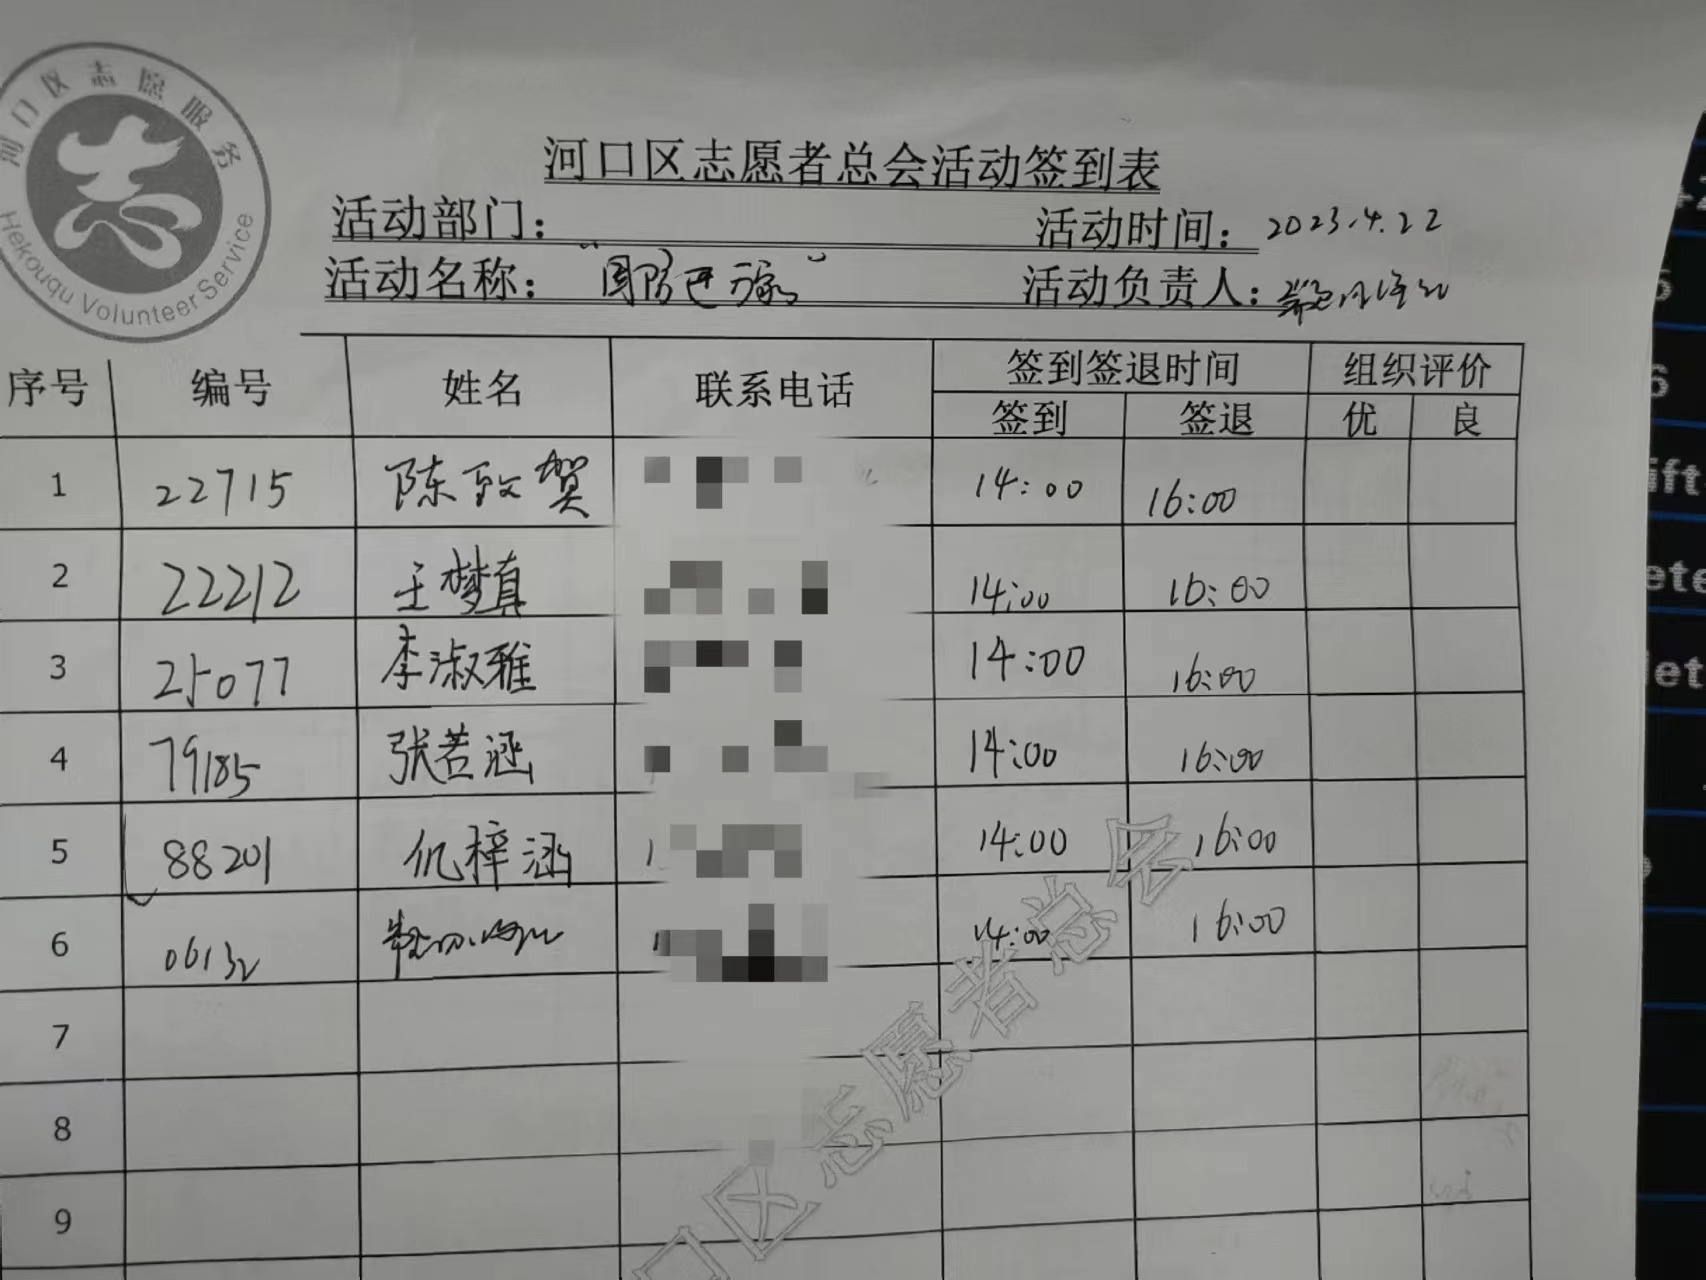 河口区志愿服务
Hekouqu Volunteer Service
河口区志愿者总会活动签到表
活动部门： 活动时间： 2023.4.22
活动名称： 活动负责人：
序号 编号 姓名 联系电话 签到签退时间 组织评价
签到 签退 优 良
1 22715 陈致贺 14:00 16:00
2 22212 王梦真 14:00 16:00
3 25077 李淑雅 14:00 16:00
4 79185 张若涵 14:00 16:00
5 88201 仉梓涵 1 14:00 16:00
6 06132 1 14:00 16:00
7
8
9
口区志愿者总会